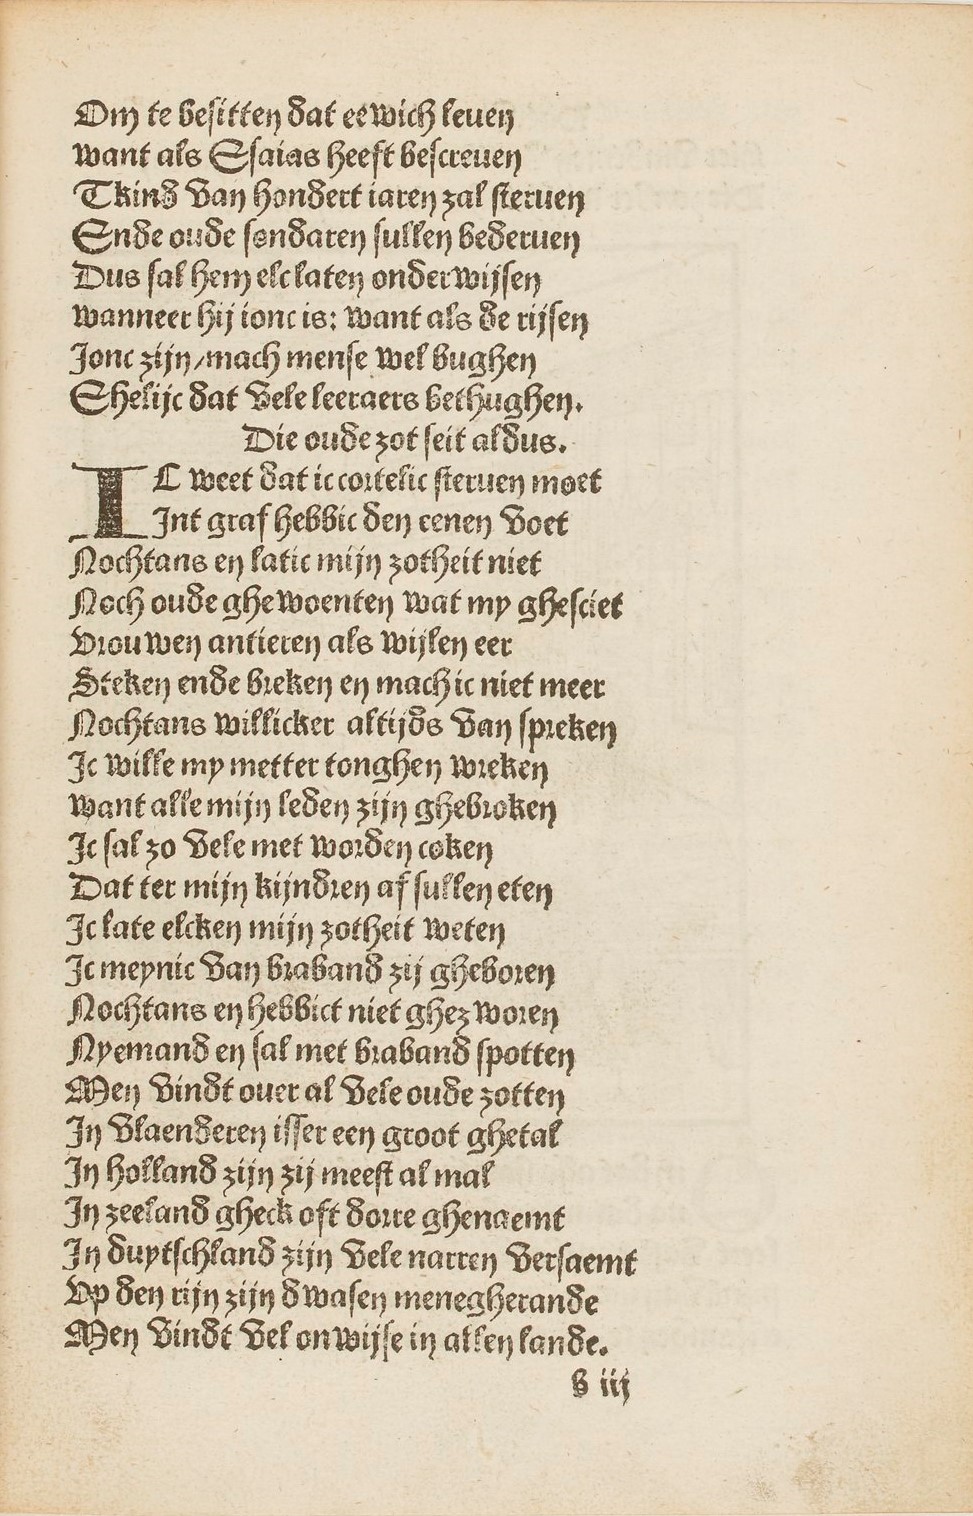 Om te besitten dat eewich leuen
want als Esaias heeft bescreuen
Tkind van hondert iaren zal steruen
Ende oude sondaren sullen bederuen
Dus sal hem elc laten onderwijsen
wanneer hij ionc is: want als de rijsen
Ionc zijn/mach mense wel bughen
Ghelijc dat vele leeraers bethughen.
Die oude zot seit aldus.
IC weet dat ic cortelic steruen moet
Int graf hebbic den eenen voet
Nochtans en latic mijn zotheit niet
Noch oude ghewoenten wat my ghesciet
Vrouwen antieren als wijlen eer
Steken ende breken en mach ic niet meer
Nochtans willicker altijds van spreken
Ic wille my metter tonghen wreken
want alle mijn leden zijn ghebroken
Ic sal zo vele met worden coken
Dat ter mijn kijndren af sullen eten
Ic late elcken mijn zotheit weten
Ic meynic van braband zij gheboren
Nochtans en hebbict niet ghezworen
Nyemand en sal met braband spotten
Men vindt ouer al vele oude zotten
In vlaenderen isser een groot ghetal
In holland zijn zij meest al mal
In zeeland gheck oft dorre ghenaemt
In duytschland zijn vele narren versaemt
Vp den rijn zijn dwasen menegherande
Men vindt vel onwijse in allen lande.
b iij